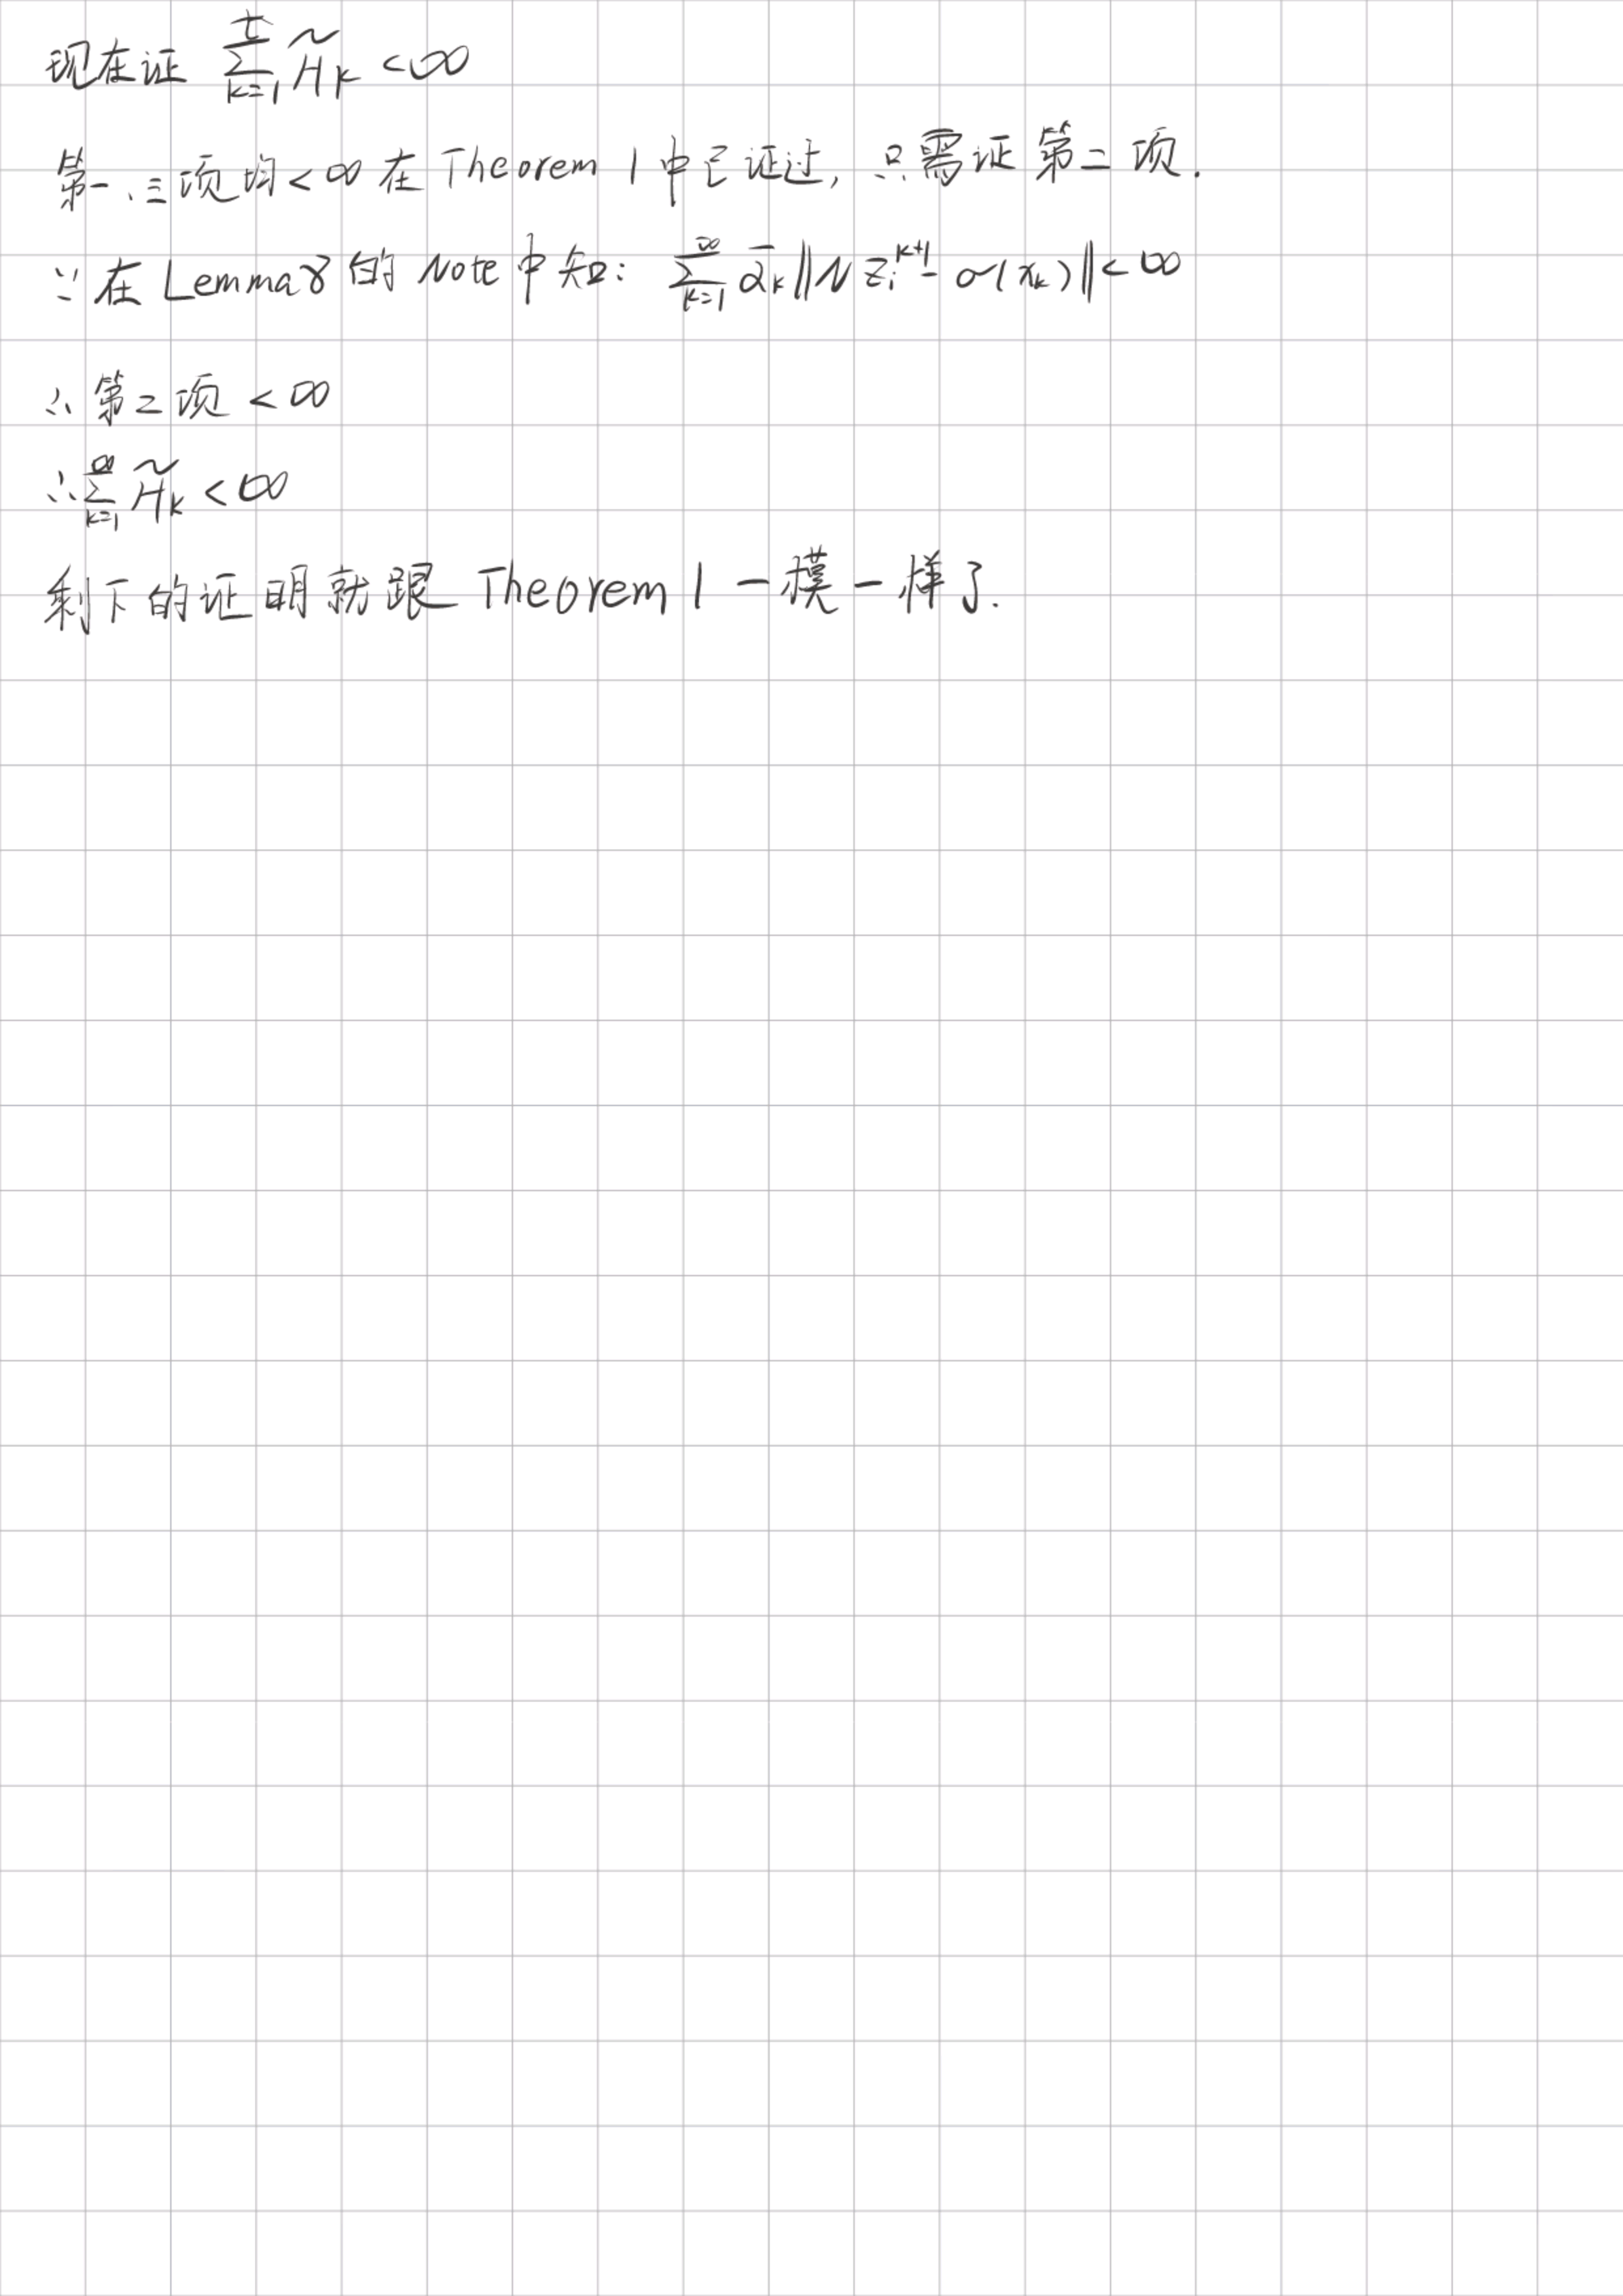 现在证 $\sum_{k=1}^{\infty} \tilde{H}_k < \infty$
第一、三项均<∞在Theorem 1中已证过, 只需证第二项.
∵在Lemma8的Note中知: $\sum_{k=1}^{\infty} \bar{\alpha}_k \| N z_i^{k+1} - \sigma(x_k) \| < \infty$
∴第二项<∞
∴ $\sum_{k=1}^{\infty} \tilde{H}_k < \infty$
剩下的证明就跟Theorem 1一模一样了.